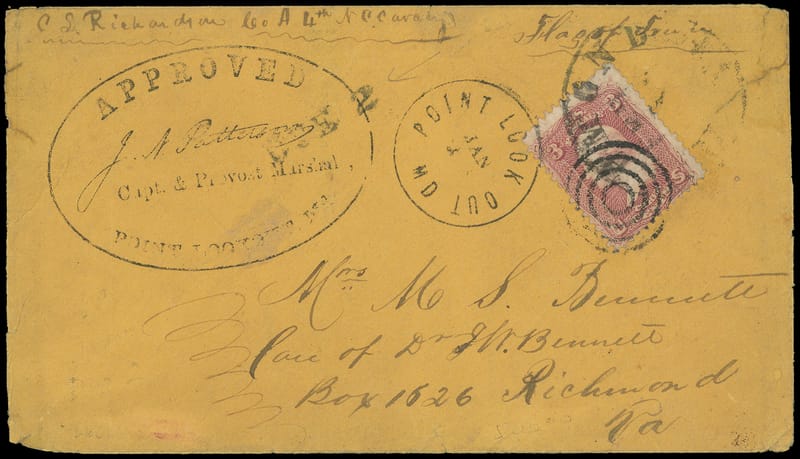 C S Richardson Co A 4th N C Cavalry
Flag of Truce
APPROVED
J. N. Patterson
Capt. & Provost Marshal,
POINT LOOKOUT, Md.
POINT LOOK OUT MD
JAN
3
Mrs M S. Bennett
Care of Dr J W. Bennett
Box 1626 Richmond
Va